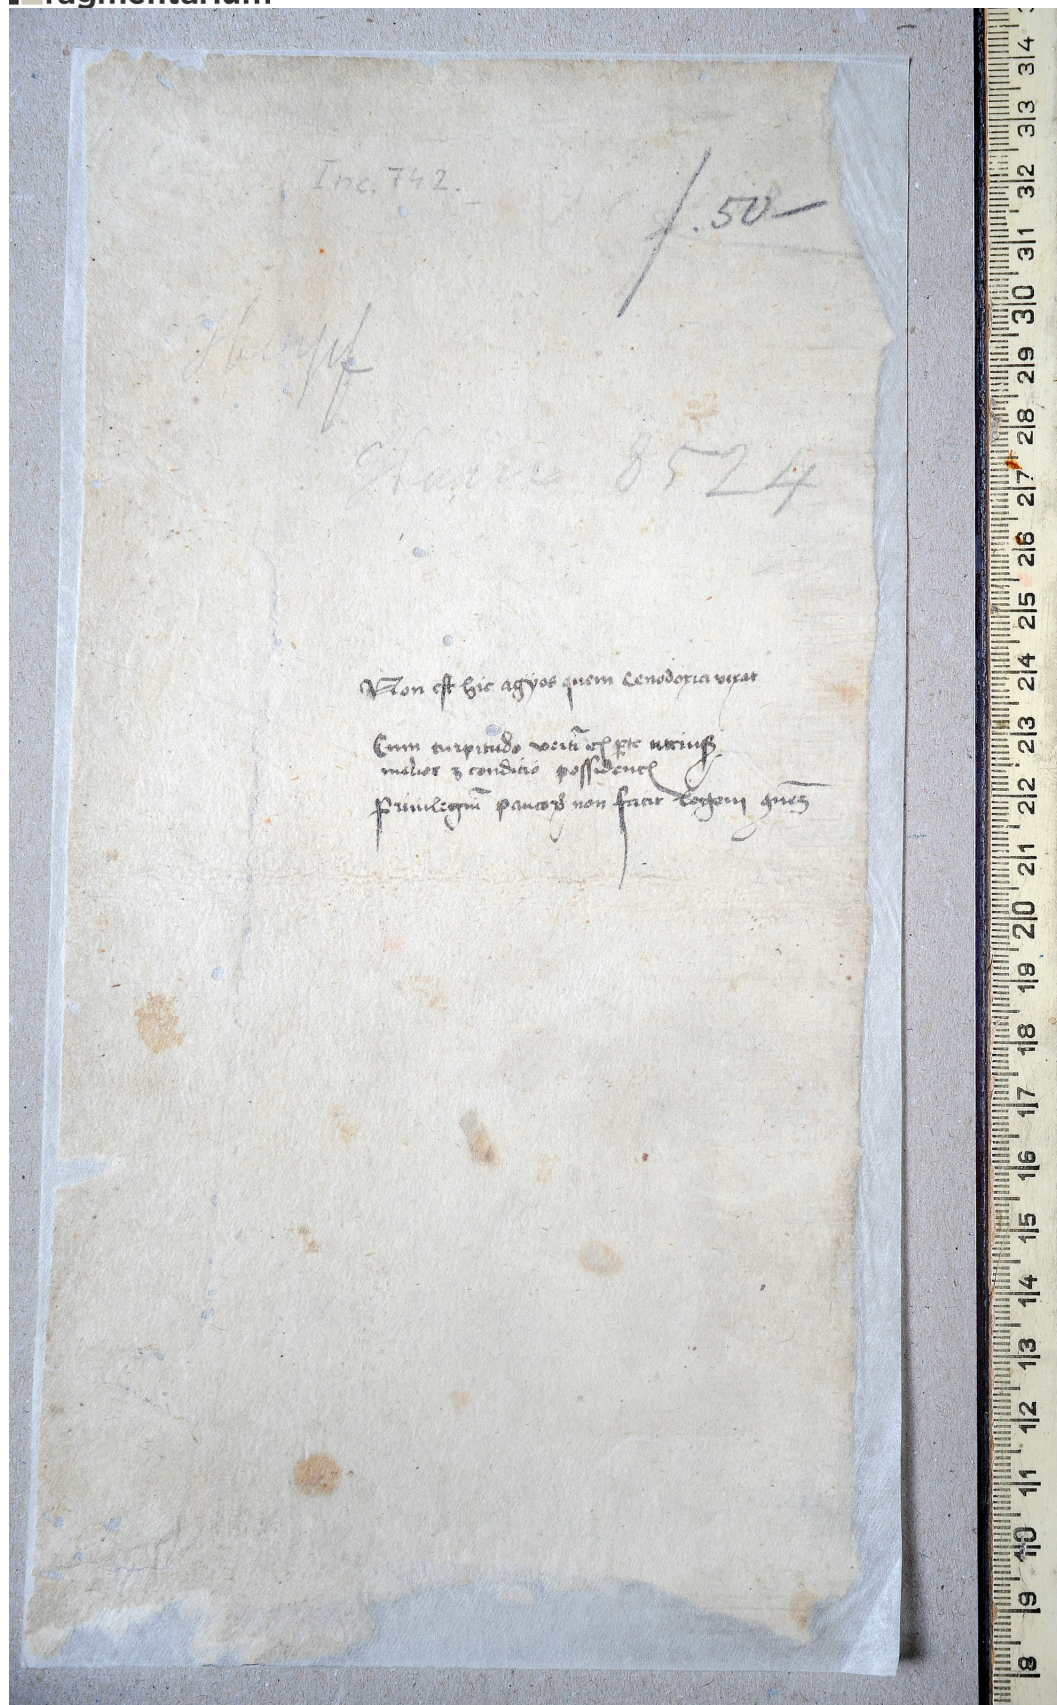 fragmentarium
Inc. 742.
f. 50 —
8524
Non est hic agyos quem Cenodoxia vexat
Cum turpitudo ex pte utriusq
melior ⁊ conditio
Privilegiū paucoꝝ non facit legem
34
33
32
31
30
29
28
27
26
25
24
23
22
21
20
19
18
17
16
15
14
13
12
11
10
9
8